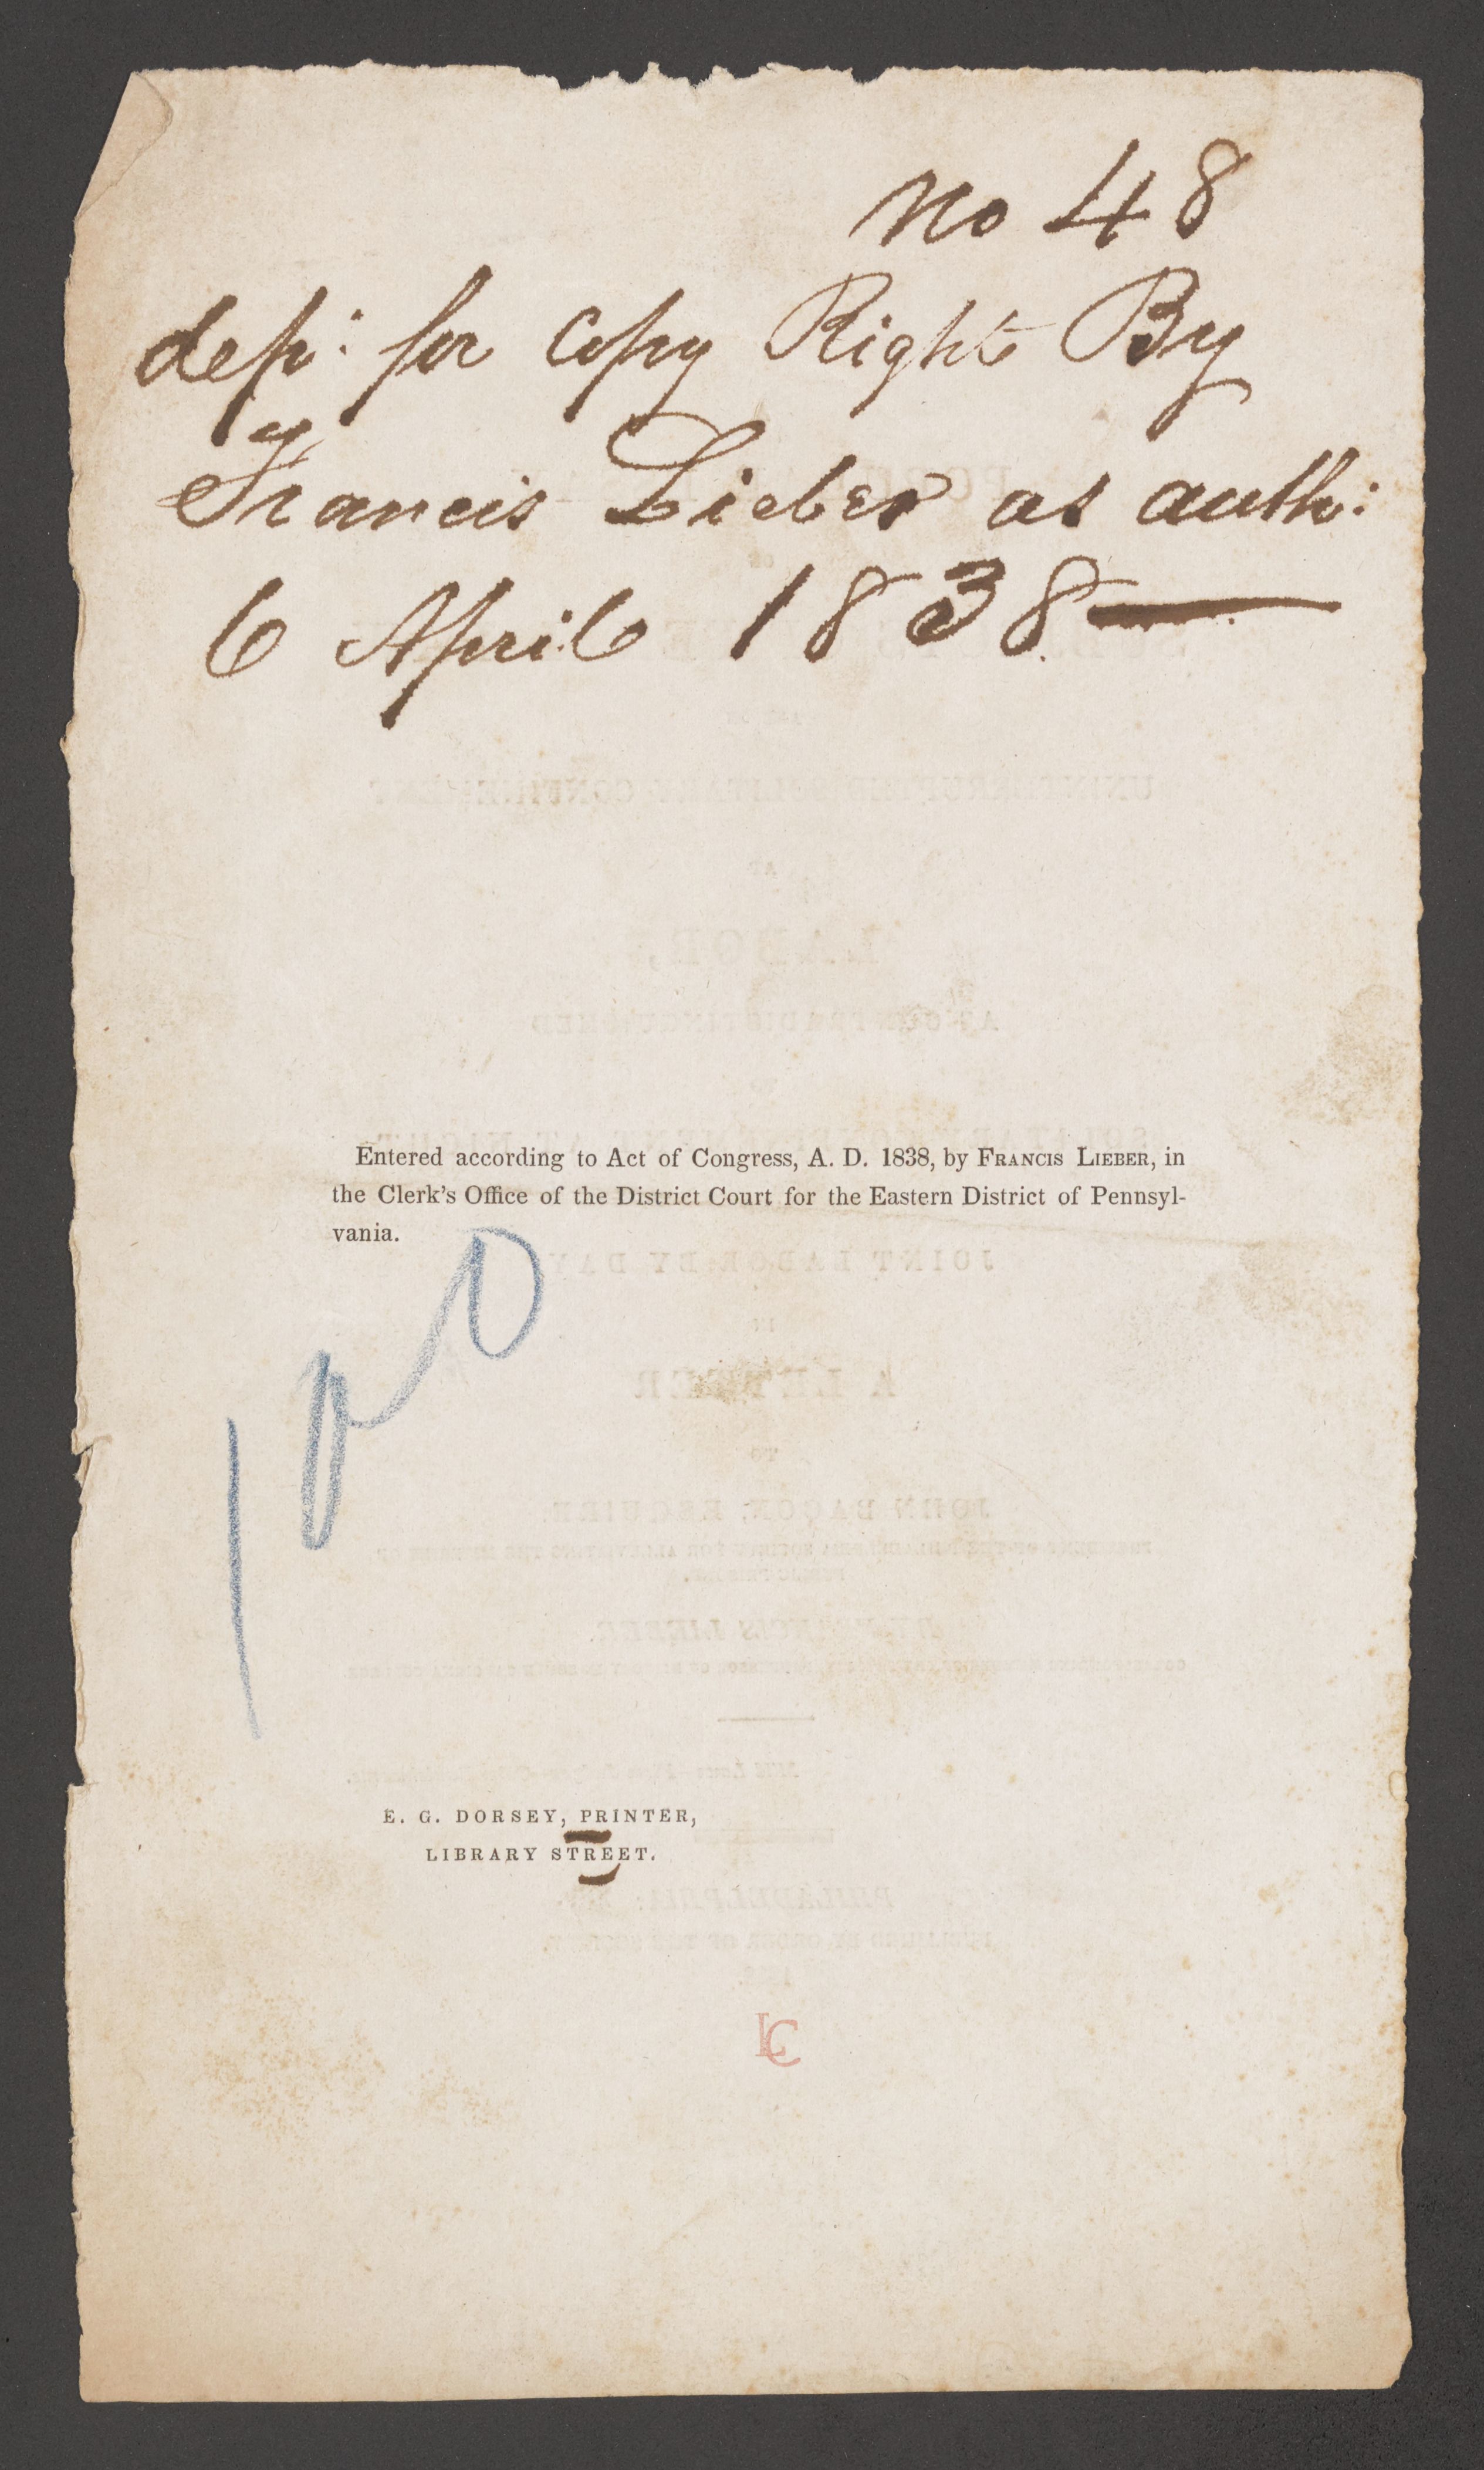 No 48
dep: for Copy Right By
Francis Lieber as auth:
6 April 1838
Entered according to Act of Congress, A. D. 1838, by FRANCIS LIEBER, in
the Clerk's Office of the District Court for the Eastern District of Pennsyl-
vania.
100
E. G. DORSEY, PRINTER,
LIBRARY STREET.
LC